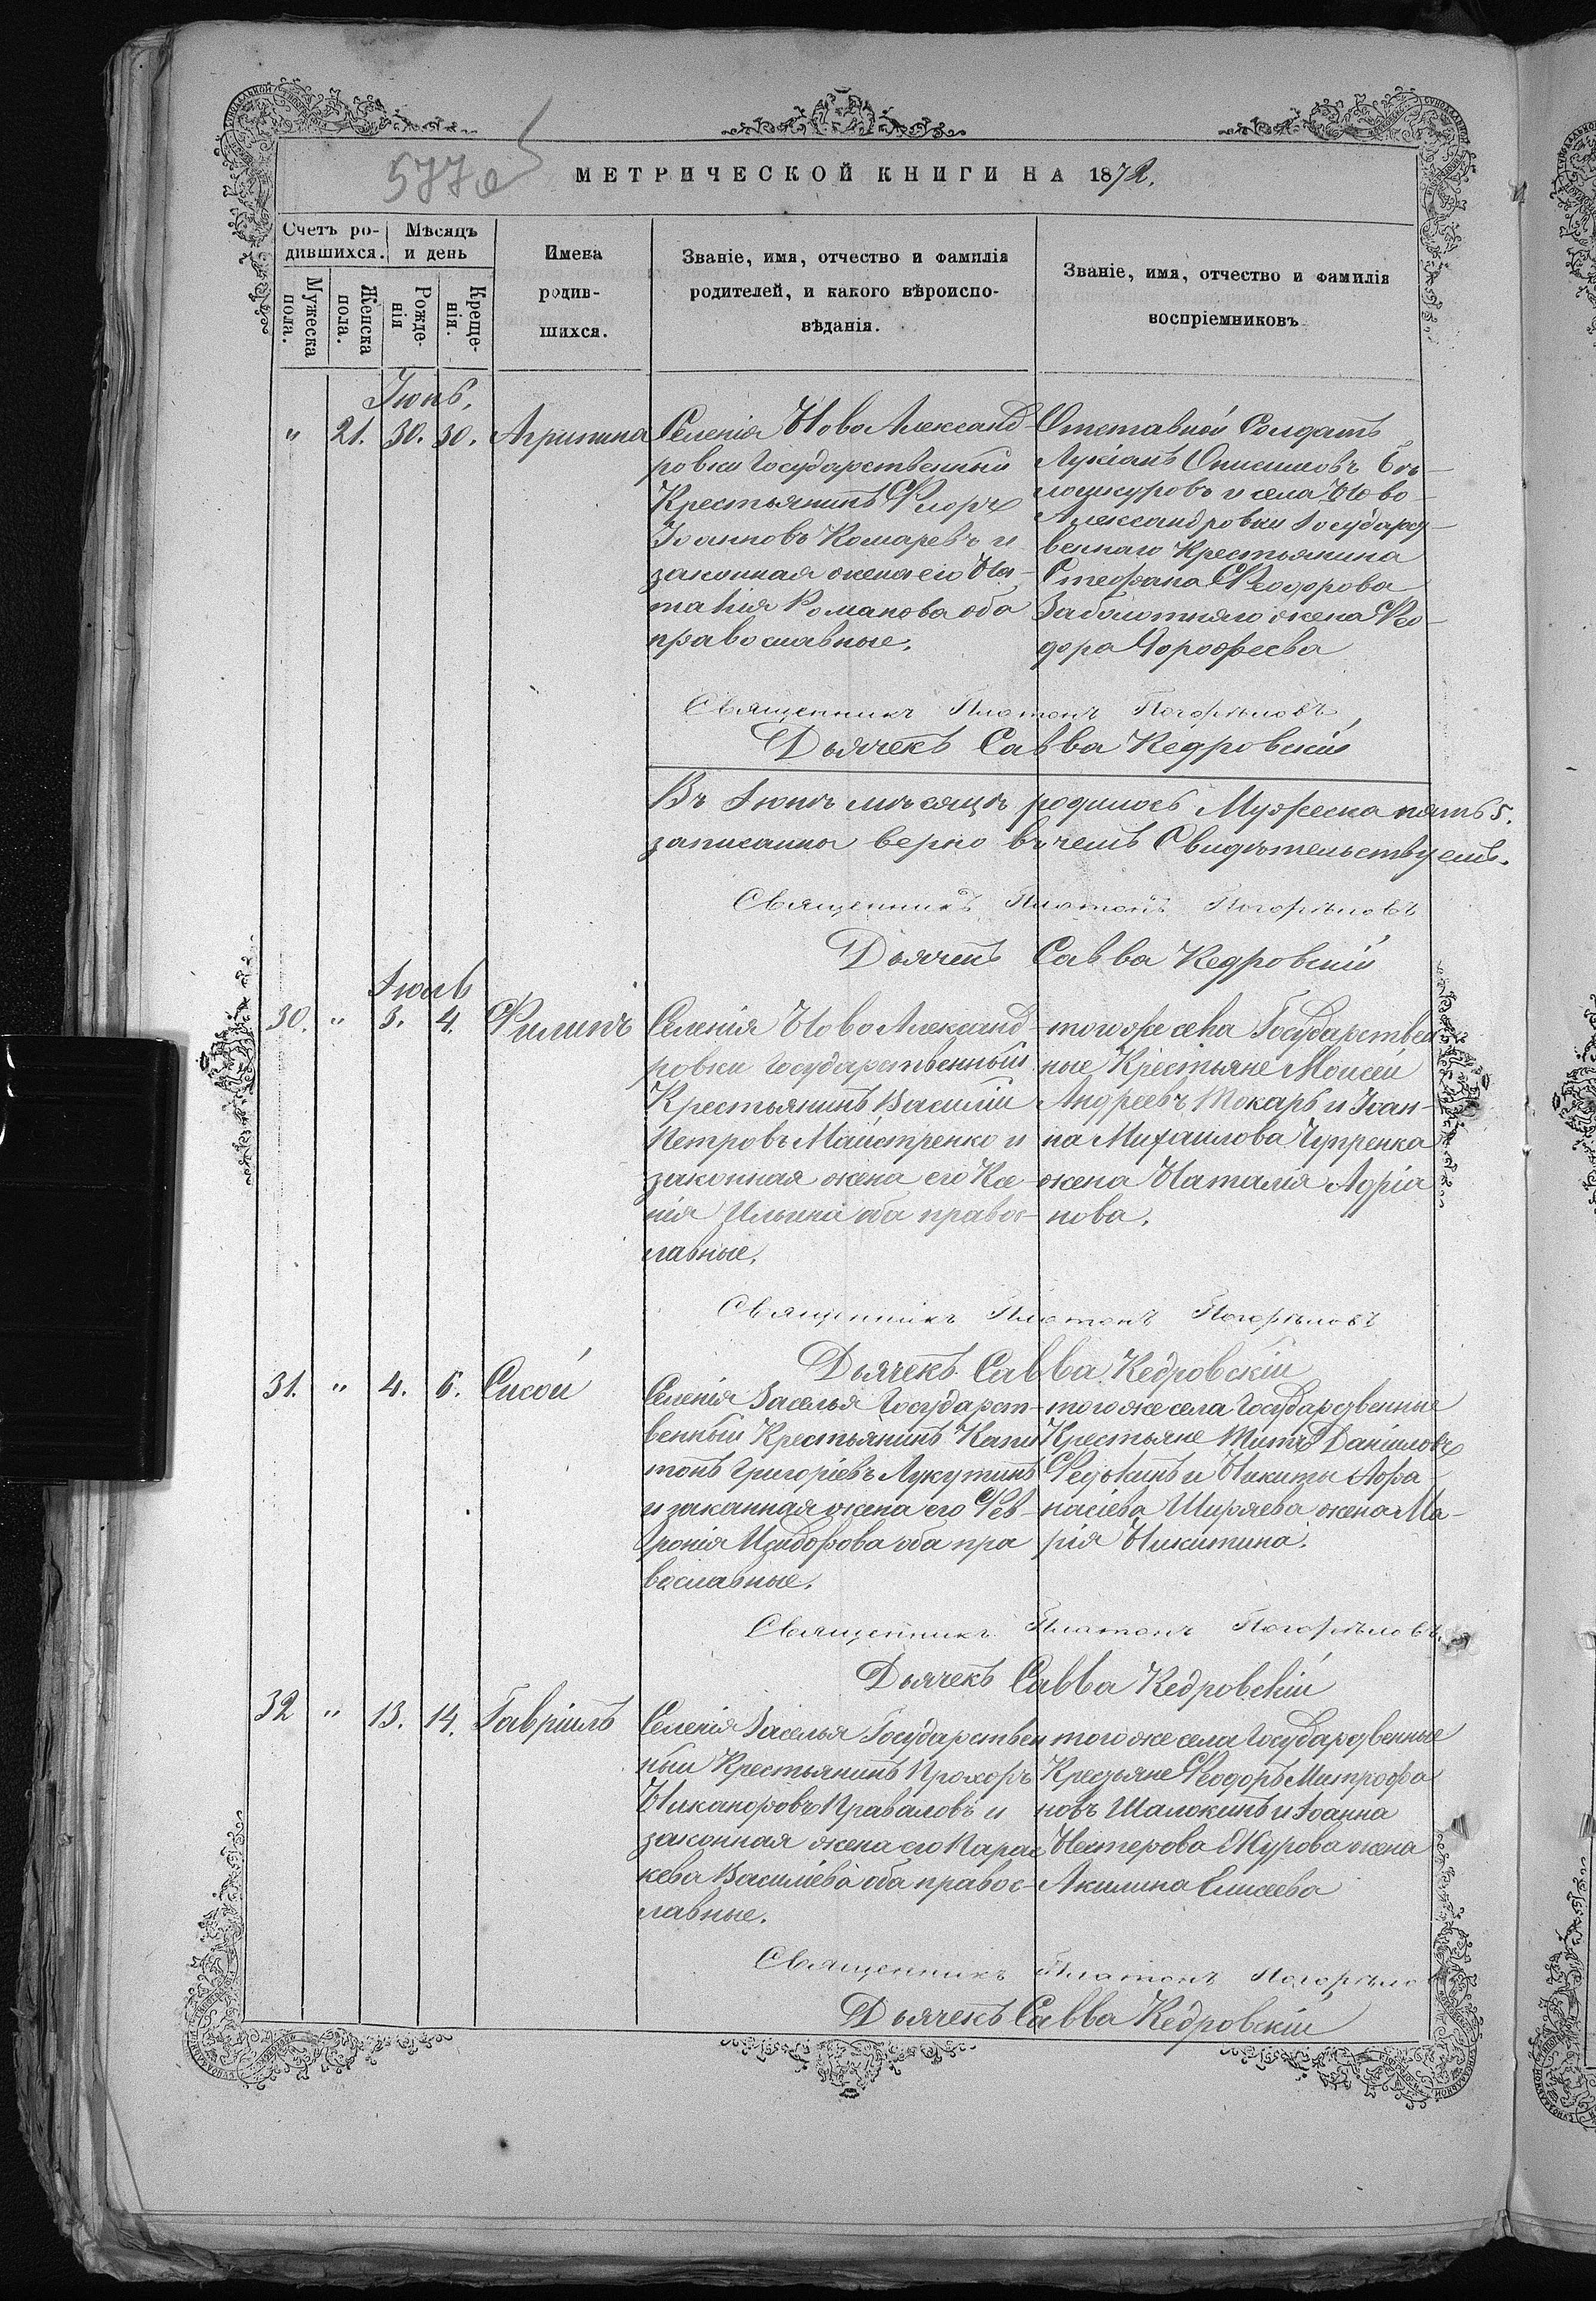 577 об
МЕТРИЧЕСКОЙ КНИГИ НА 1872.
Счетъ ро-
дившихся.
Мѣсяцъ
и день
Мужеска
пола.
Женска
пола.
Рожде-
нія
Креще-
нія.
Имена
родив-
шихся.
Званіе, имя, отчество и фамилія
родителей, и какого вѣроиспо-
вѣданія.
Званіе, имя, отчество и фамилія
воспріемниковъ
Іюнь.
" 21. 30. 30. Агрипина
Селенія Ново Александ-
ровки Государственный
Крестьянинъ Флоръ
Іоанновъ Комаревъ и
законная жена его На-
талія Романова оба
православные.
Отставной Солдатъ
Лукіанъ Онисимовъ Бѣ-
лошкуровъ и села Ново
Александровки Государс-
твеннаго Крестьянина
Стефана Феодорова
Заболотняго жена Фео-
дора Дорофеева
Священникъ Платонъ Погорѣловъ
Дьячекъ Савва Кедровскій
Въ Іюнѣ мѣсяцѣ родилось Мужеска пять 5.
записанно верно въ чемъ Свидѣтельствуемъ.
Священникъ Платонъ Погорѣловъ
Дьячекъ Савва Кедровскій
Іюль
30. " 3. 4. Филипъ
Селенія Ново Александ-
ровки Государственный
Крестьянинъ Василій
Петровъ Майстренко и
законная жена его Ксе-
нія Ильина оба правос-
лавные.
тогоже села Государствен
ные Крестьяне Моисей
Андреевъ Токарь и Іоан-
на Михаилова Чупренка
жена Наталія Адріа
нова.
Священникъ Платонъ Погорѣловъ
Дьячекъ Савва Кедровскій
31. " 4. 6. Сисой
Селенія Заселья Государст-
венный Крестьянинъ Капи
тонъ Григоріевъ Лукутинъ
и законная жена его Фев-
ронія Исидорова оба пра
вославные.
тогоже села Государственные
Крестьяне Титъ Даніиловъ
Федькинъ и Никиты Афа-
насіева Ширяева жена Ма-
рія Никитина.
Священникъ Платонъ Погорѣловъ.
Дьячекъ Савва Кедровскій
32 " 13. 14. Гавріилъ
Селенія Заселья Государствен
ный Крестьянинъ Прохоръ
Никаноровъ Проваловъ и
законная жена его Парас
кева Василіева оба правос-
лавные.
тогоже села Государственные
Крестьяне Феодоръ Митрофа
новъ Шалокинъ и Іоанна
Нестерова Журова жена
Акилина Елисеева
Священникъ Платонъ Погорѣло
Дьячекъ Савва Кедровскій